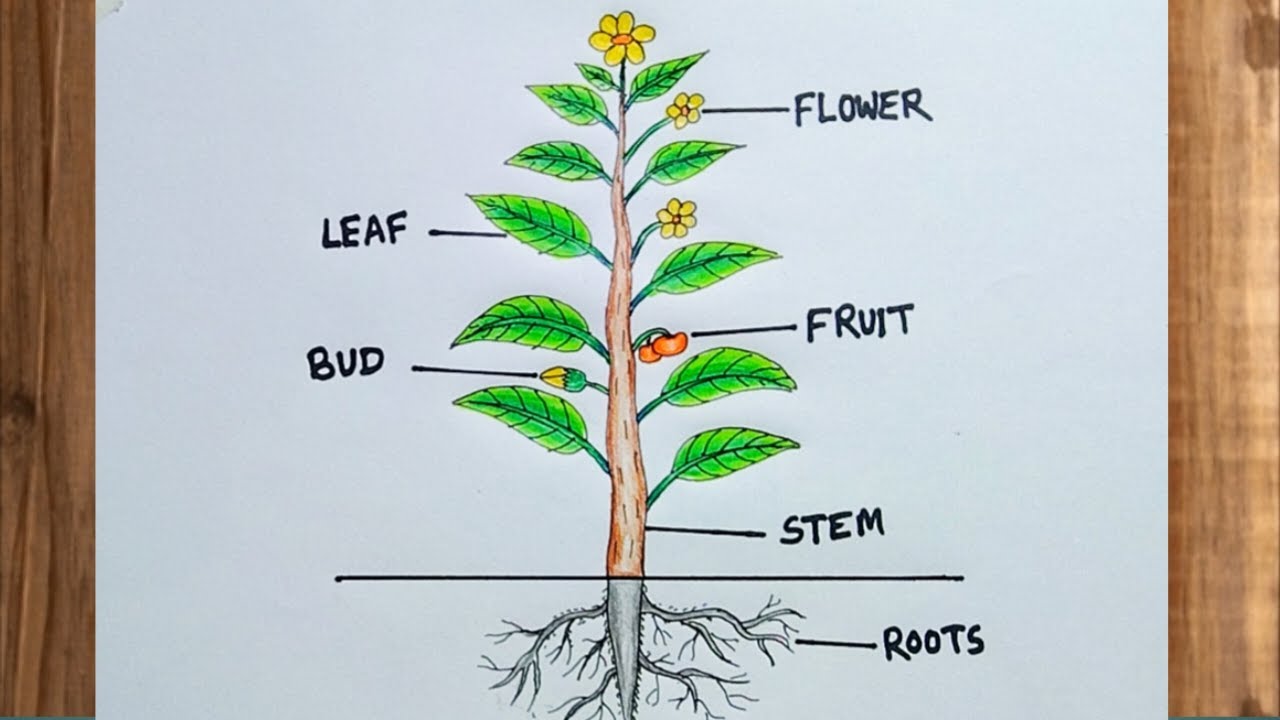 FLOWER
LEAF
FRUIT
BUD
STEM
ROOTS